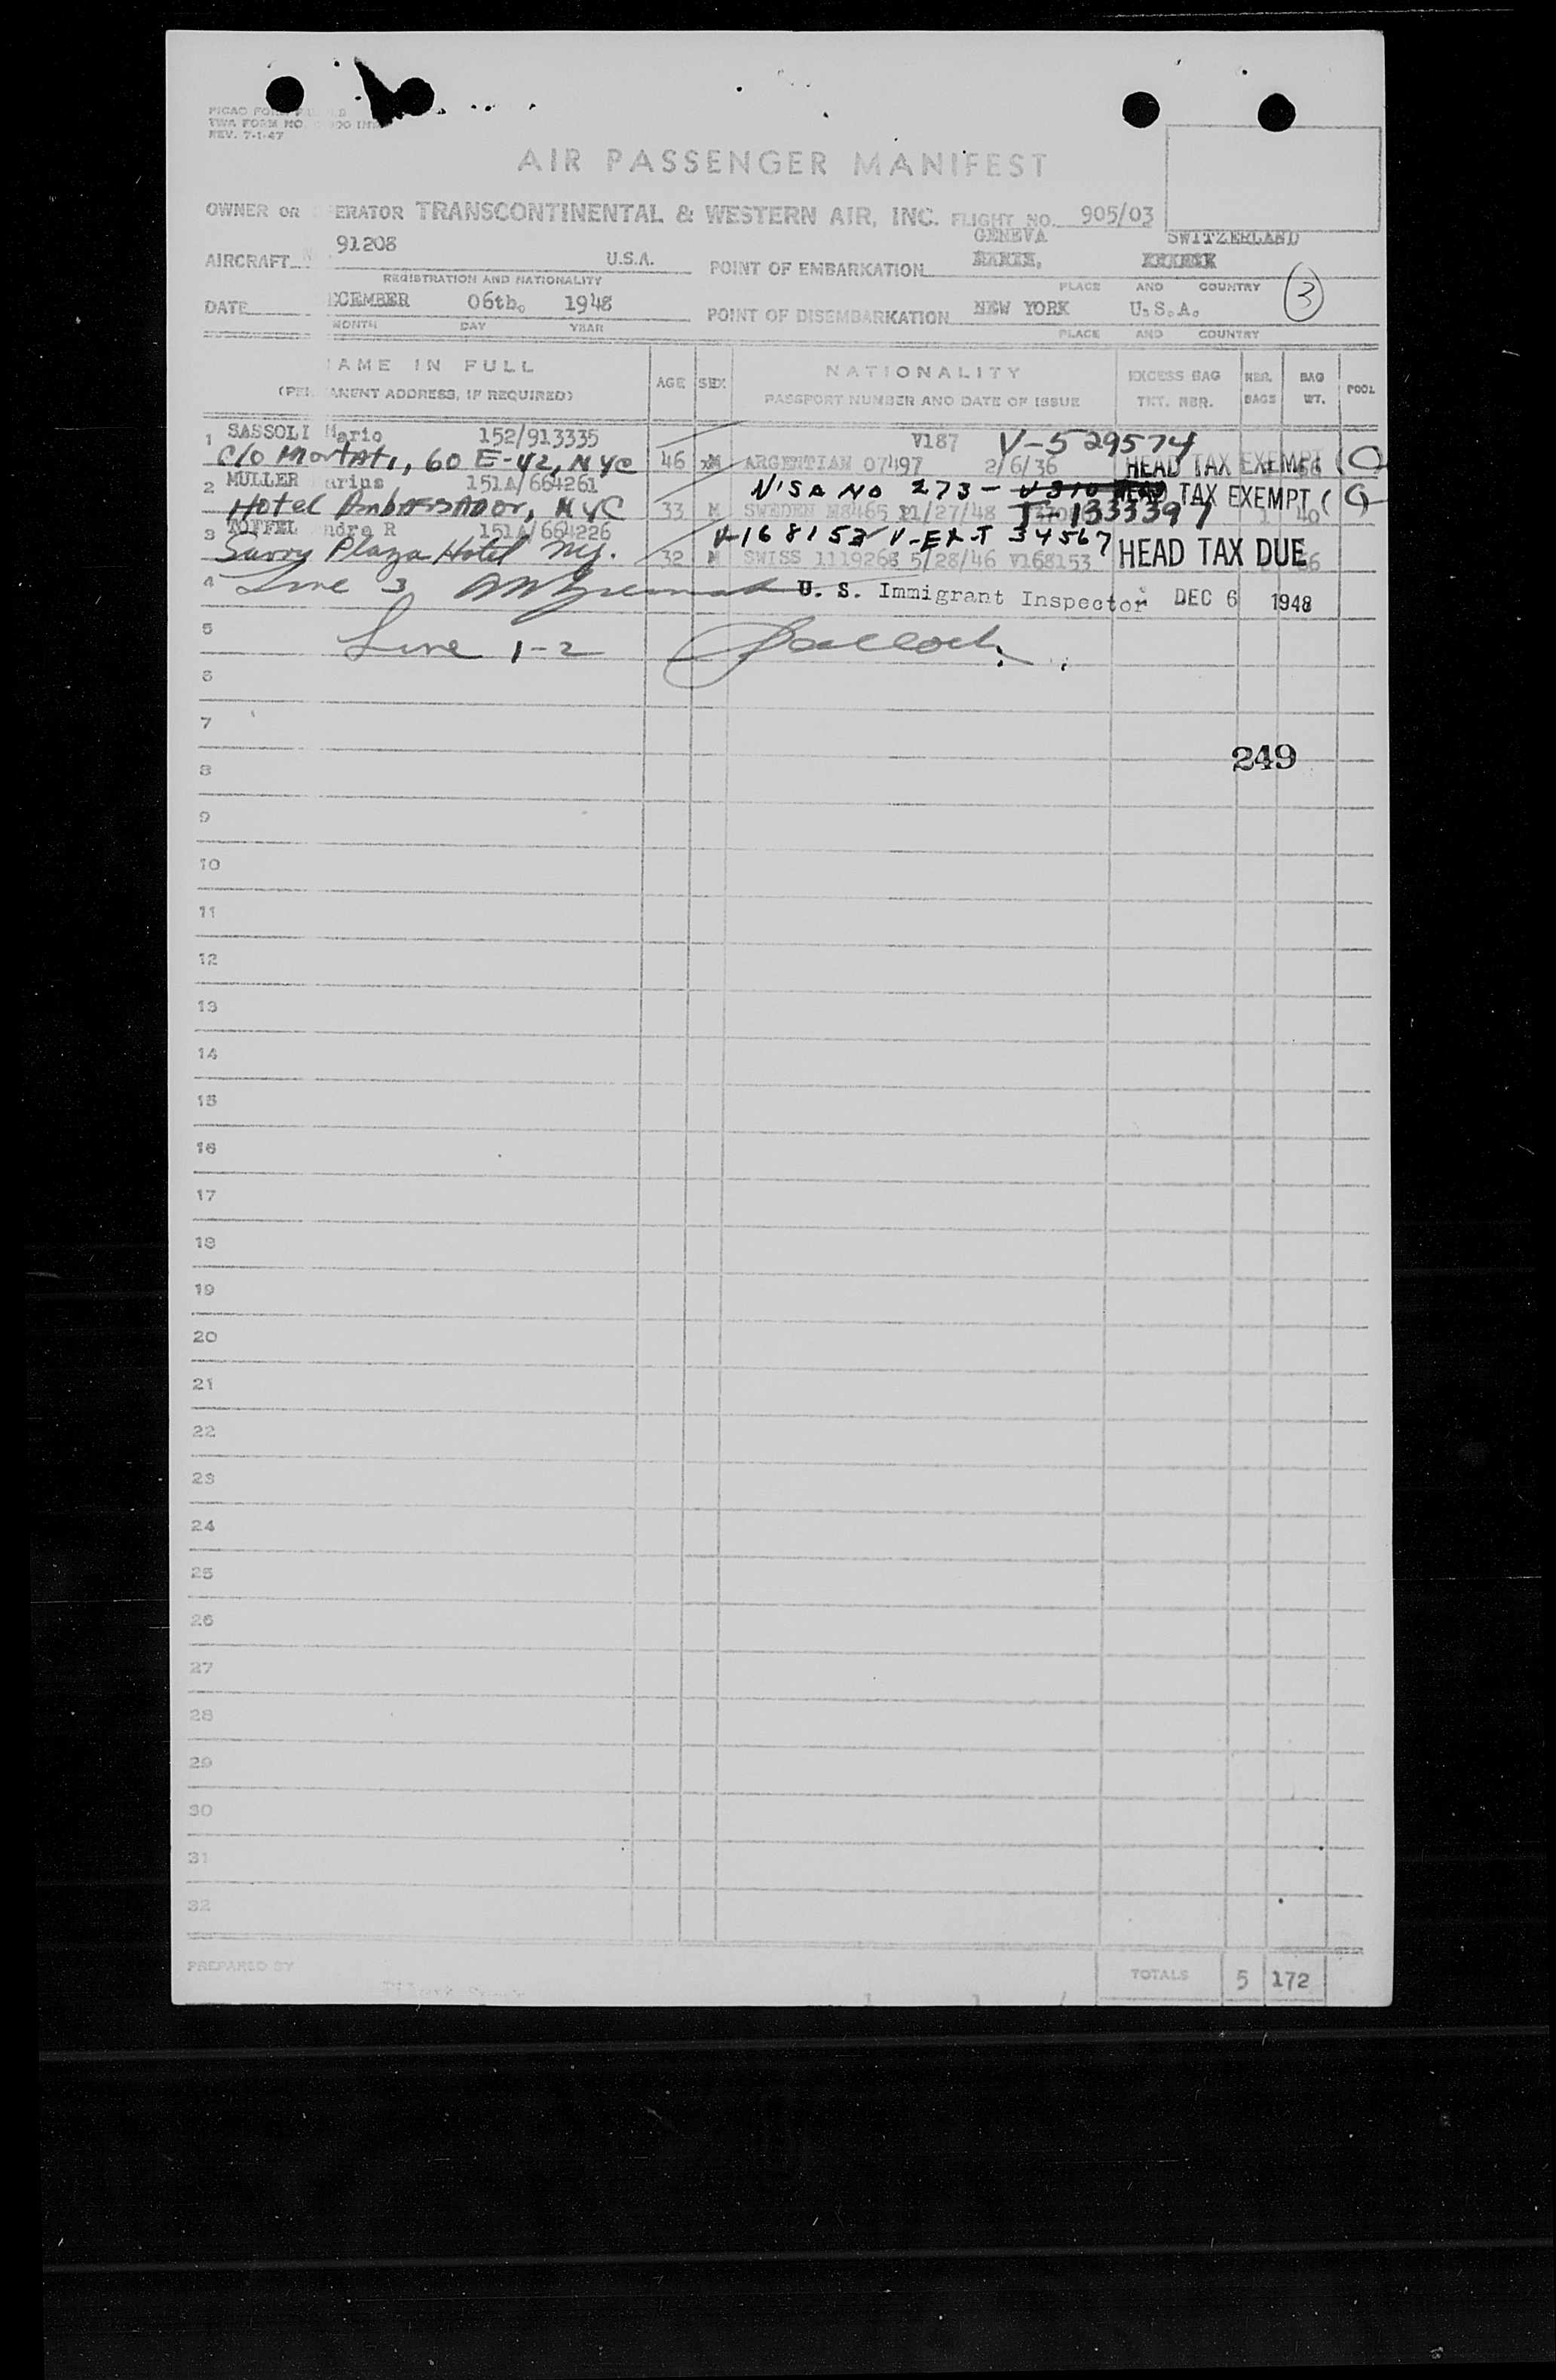 PICAO FORM
TWA FORM NO.
REV. 7-1-47
AIR PASSENGER MANIFEST
OWNER OR ERATOR TRANSCONTINENTAL & WESTERN AIR, INC. FLIGHT NO. 905/03
GENEVA SWITZERLAND
AIRCRAFT 91208 U.S.A. POINT OF EMBARKATION
REGISTRATION AND NATIONALITY PLACE AND COUNTRY
3
DATE ECEMBER 06th. 1948 POINT OF DISEMBARKATION NEW YORK U.S.A.
MONTH DAY YEAR PLACE AND COUNTRY
AME IN FULL AGE SEX NATIONALITY EXCESS BAG NBR. BAG POOL
ANENT ADDRESS, IF REQUIRED) PASSPORT NUMBER AND DATE OF ISSUE TKT. NBR. BAGS WT.
1 SASSOLI Mario 152/913335 V187 V-529574
C/O Mortati, 60 E-42, NYC 46 M ARGENTIAN 07497 2/6/36 HEAD TAX EXEMPT
2 MULLER arius 151A/664261 VISA NO 273 - HEAD TAX EXEMPT
Hotel Ambassador, NYC 33 M SWEDEN 11/27/48 T-1333397 1 40
3 TOFFEL ndre R 151A/664226 V-168153 V-EXT 34567
Savoy Plaza Hotel NY. 32 M SWISS 1119268 5/28/46 V168153 HEAD TAX DUE 66
4 Line 3 U. S. Immigrant Inspector DEC 6 1948
5 Line 1-2
6
7
249
8
9
10
11
12
13
14
15
16
17
18
19
20
21
22
23
24
25
26
27
28
29
30
31
32
PREPARED BY TOTALS 5 172